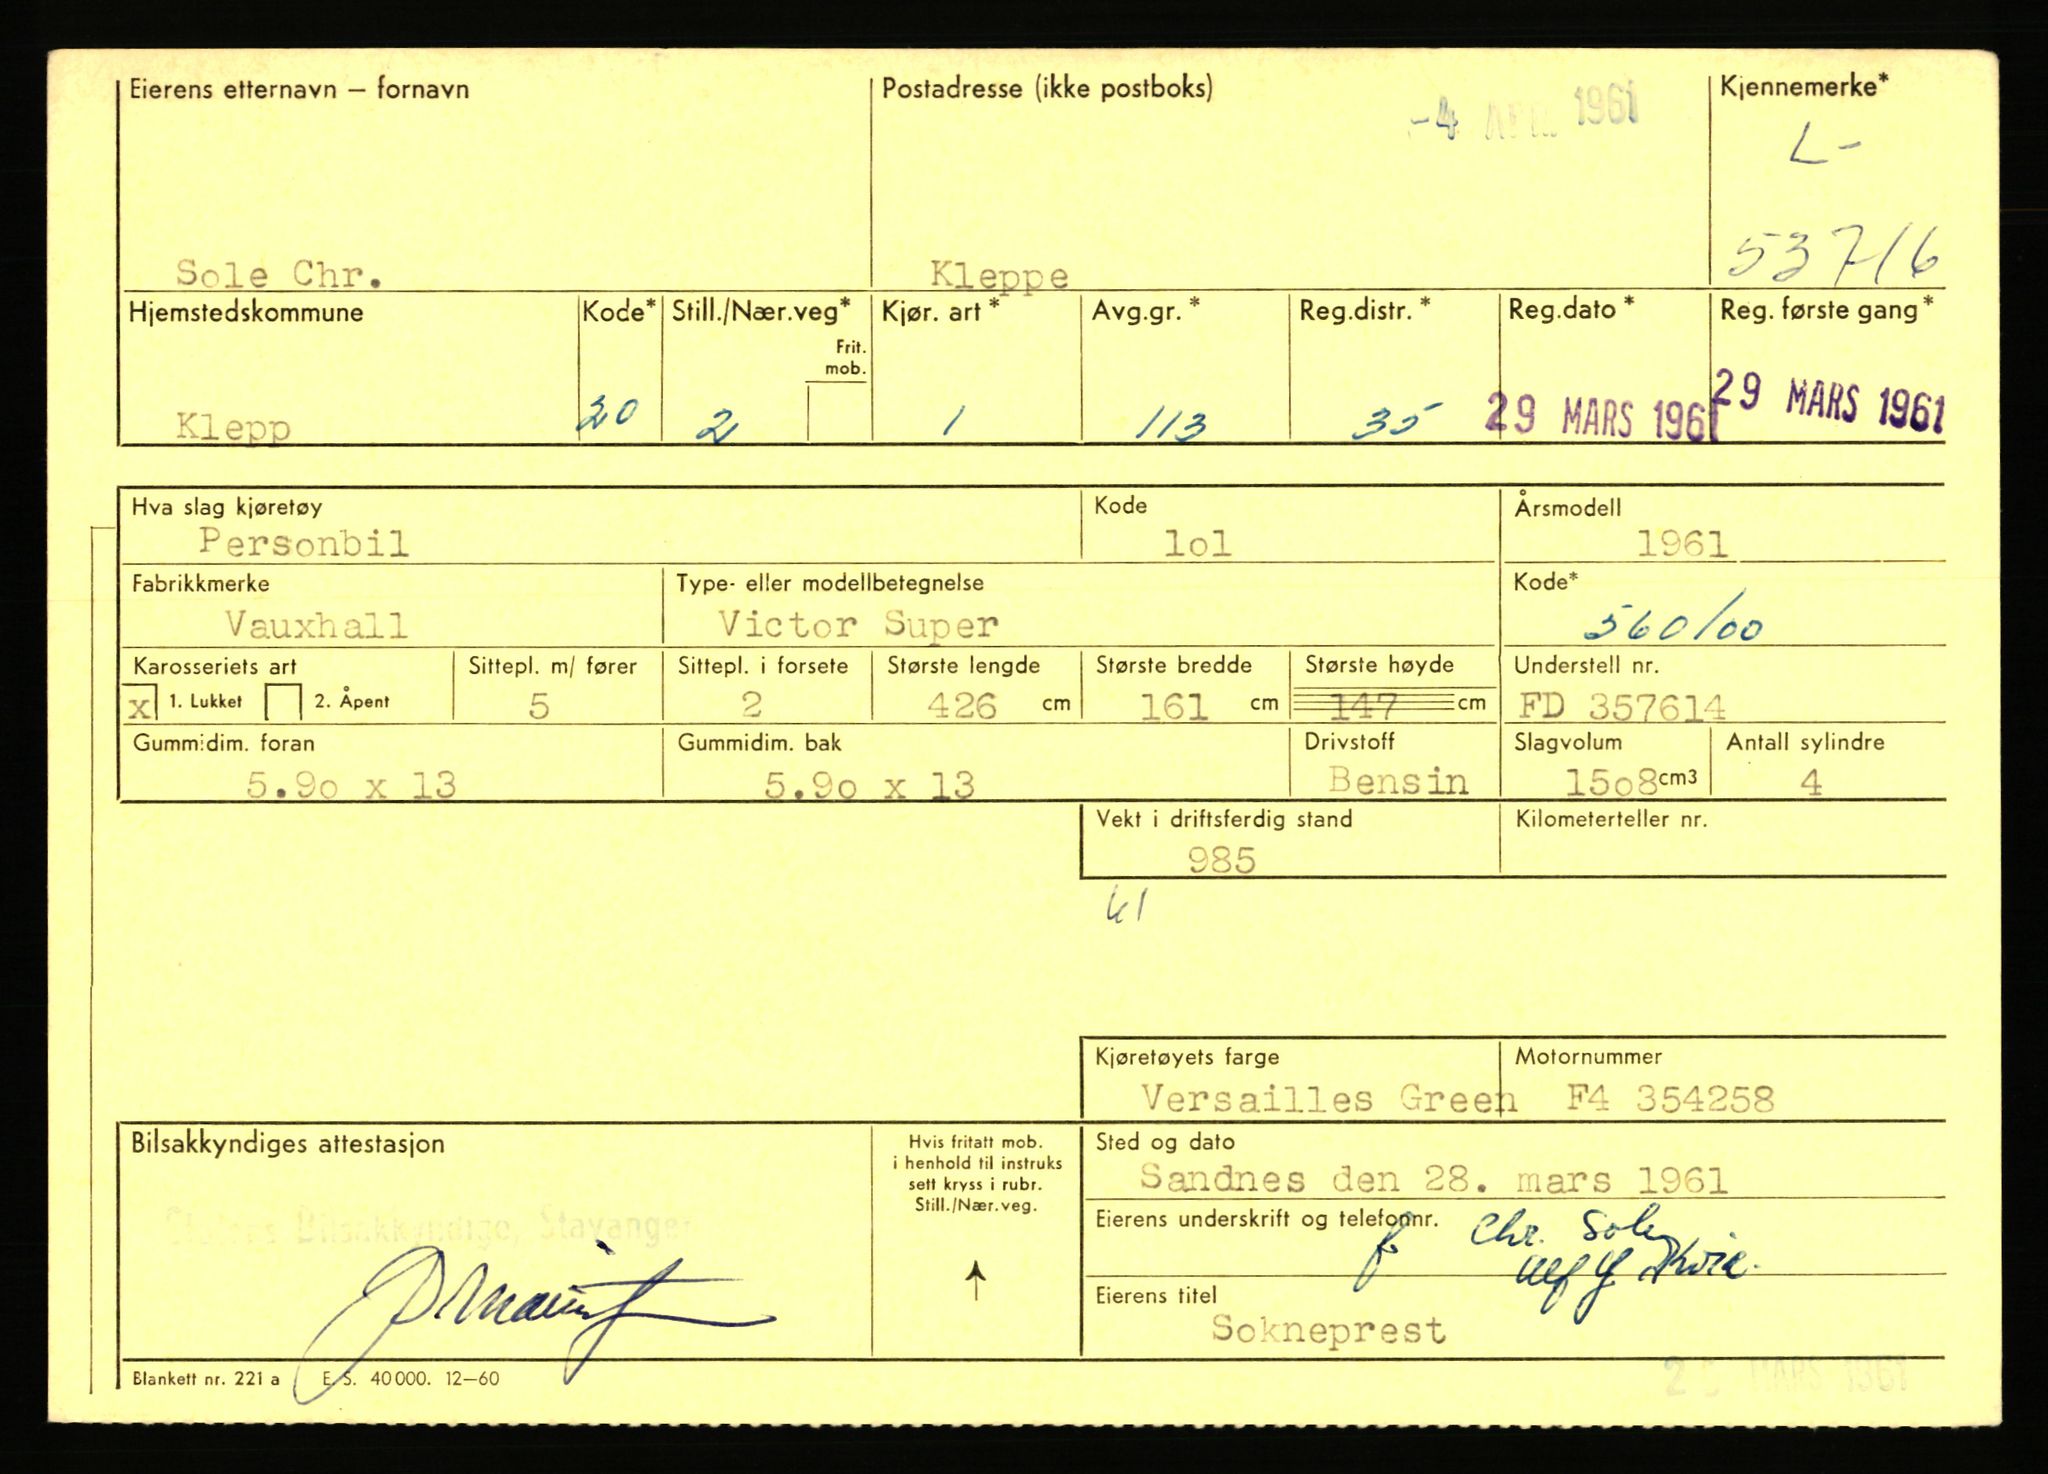 Eierens etternavn – fornavn Postadresse (ikke postboks) Kjennemerke*
-4 1961
L-
53716
Sole Chr. Kleppe
Hjemstedskommune Kode* Still./Nær.veg* Kjør. art* Avg.gr.* Reg.distr.* Reg.dato* Reg. første gang*
Frit.
mob.
Klepp 20 2 1 113 35 29 MARS 1961 29 MARS 1961
Hva slag kjøretøy Kode Årsmodell
Personbil 1o1 1961
Fabrikkmerke Type- eller modellbetegnelse Kode*
Vauxhall Victor Super 560/00
Karosseriets art Sittepl. m/ fører Sittepl. i forsete Største lengde Største bredde Største høyde Understell nr.
x 1. Lukket 2. Åpent 5 2 426 cm 161 cm 147 cm FD 357614
Gummidim. foran Gummidim. bak Drivstoff Slagvolum Antall sylindre
5.9o x 13 5.9o x 13 Bensin 15o8 cm3 4
Vekt i driftsferdig stand Kilometerteller nr.
985
61
Kjøretøyets farge Motornummer
Versailles Green F4 354258
Bilsakkyndiges attestasjon Hvis fritatt mob. Sted og dato
i henhold til instruks
sett kryss i rubr.
Still./Nær.veg.
Sandnes den 28. mars 1961
Statens Bilsakkyndige, Stavanger
Eierens underskrift og telefonnr.
f. Chr. Sole
Alf
Eierens titel
Sokneprest
Blankett nr. 221 a E. S. 40 000. 12–60
MARS 1961